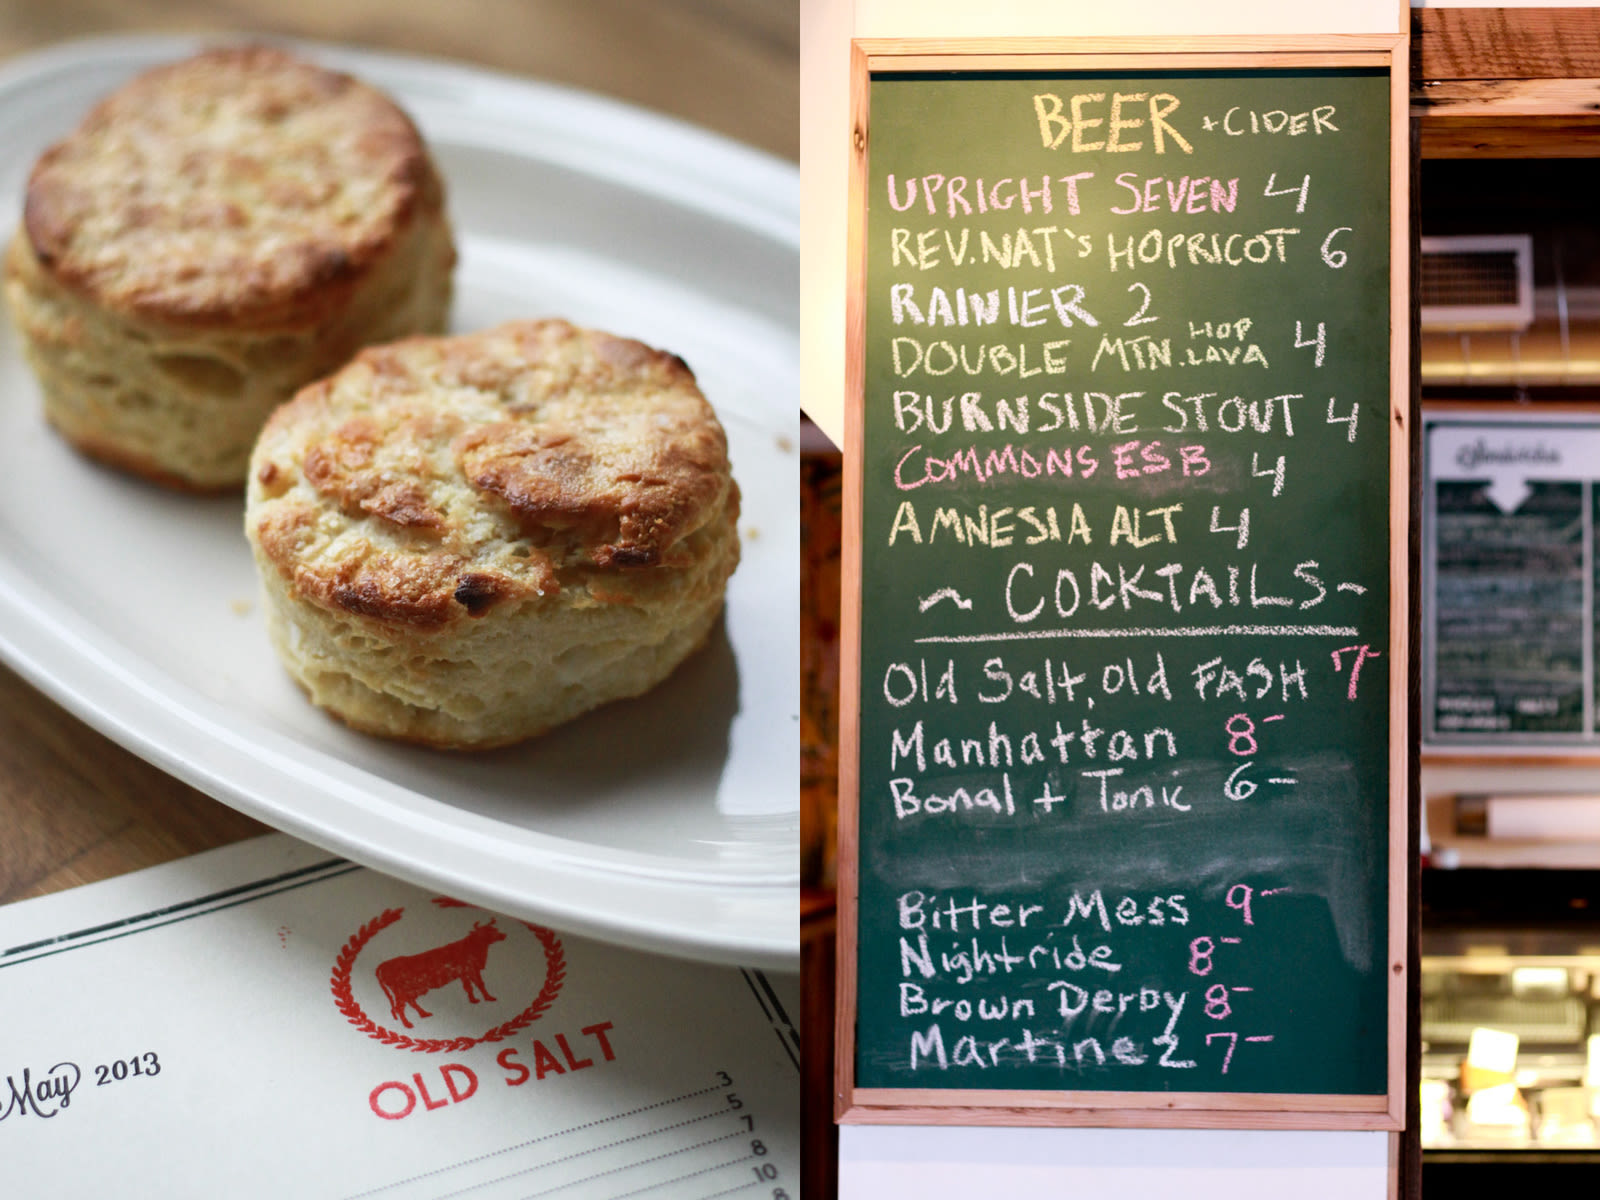 May 2013
OLD SALT
3
5
7
8
10
8
BEER + CIDER
UPRIGHT SEVEN 4
REV. NAT'S HOPRICOT 6
RAINIER 2
DOUBLE MTN. HOP LAVA 4
BURNSIDE STOUT 4
COMMONS ESB 4
AMNESIA ALT 4
~ COCKTAILS ~
Old Salt, old FASH 7-
Manhattan 8-
Bonal + Tonic 6-
Bitter Mess 9-
Nightride 8-
Brown Derby 8-
Martinez 7-